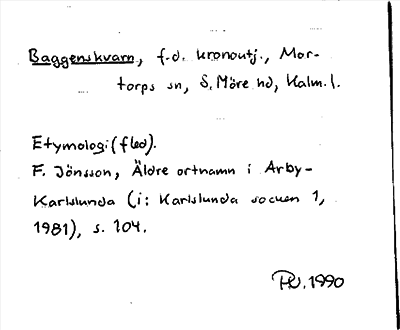 Baggenskvarn, f.d. kronoutj., Mor-
torps sn, S. Möre hd, Kalm. l.
Etymologi (fled).
F. Jönsson, Äldre ortnamn i Arby-
Karlslunda (i: Karlslunda socken 1,
1981), s. 104.
1990